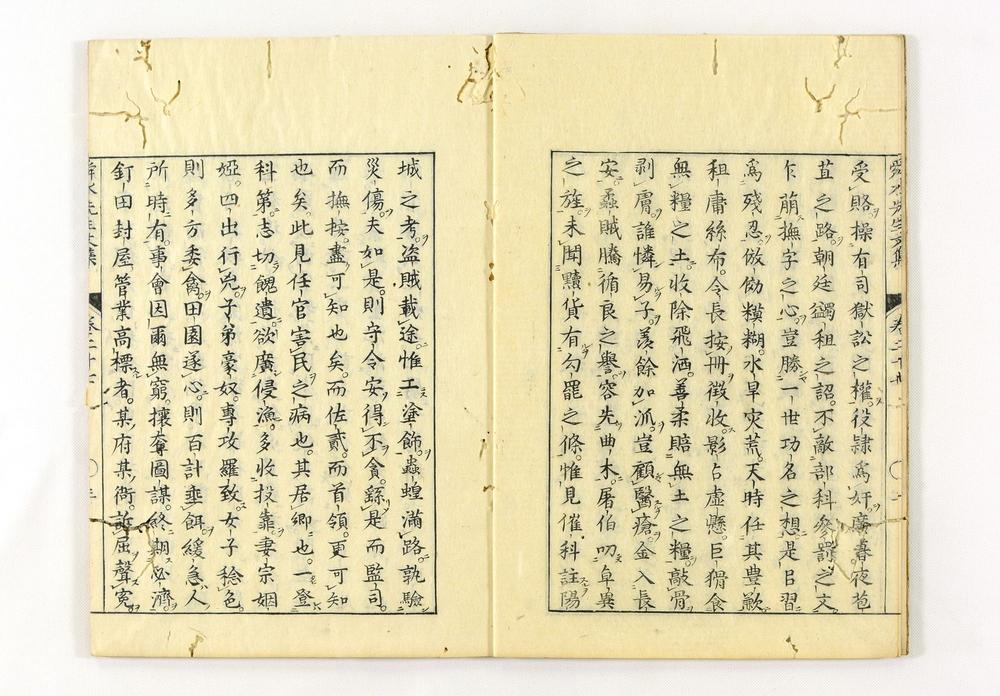 受賂操有司獄訟之權役隷爲奸廣暮夜苞
苴之路朝廷蠲租之詔不敵部科參罰之文
乍萠撫字之心豈勝一世功名之想是㠯習
爲殘忍倣傚糢糊水旱灾荒天時任其豐歉
租庸絲布令長按冊徴收影占虛懸巨猾食
無糧之土收除飛洒善柔賠無土之糧敲骨
剥膚誰憐易子羨餘加派豈顧醫瘡金入長
安蟊賊騰循良之譽容先曲木屠伯叨卓異
之旌未聞黷貨有勾罷之條惟見催科註陽
城之考盗賊載途惟工塗飾蟲蝗滿路孰驗
災傷夫如是則守令安得不貪繇是而監司
而撫按盡可知也矣而佐貳而首領更可知
也矣此見任官害民之病也其居鄉也一登
科第志切餽遺欲廣侵漁多收投靠妻宗姻
婭四出行兇子弟豪奴專攻羅致女子稔色
則多方委禽田園遂心則百計垂餌緩急人
所時有事會因爾無窮攘奪圖謀終期必濟
釘田封屋管業高標者某府某衙訴屈聲寃